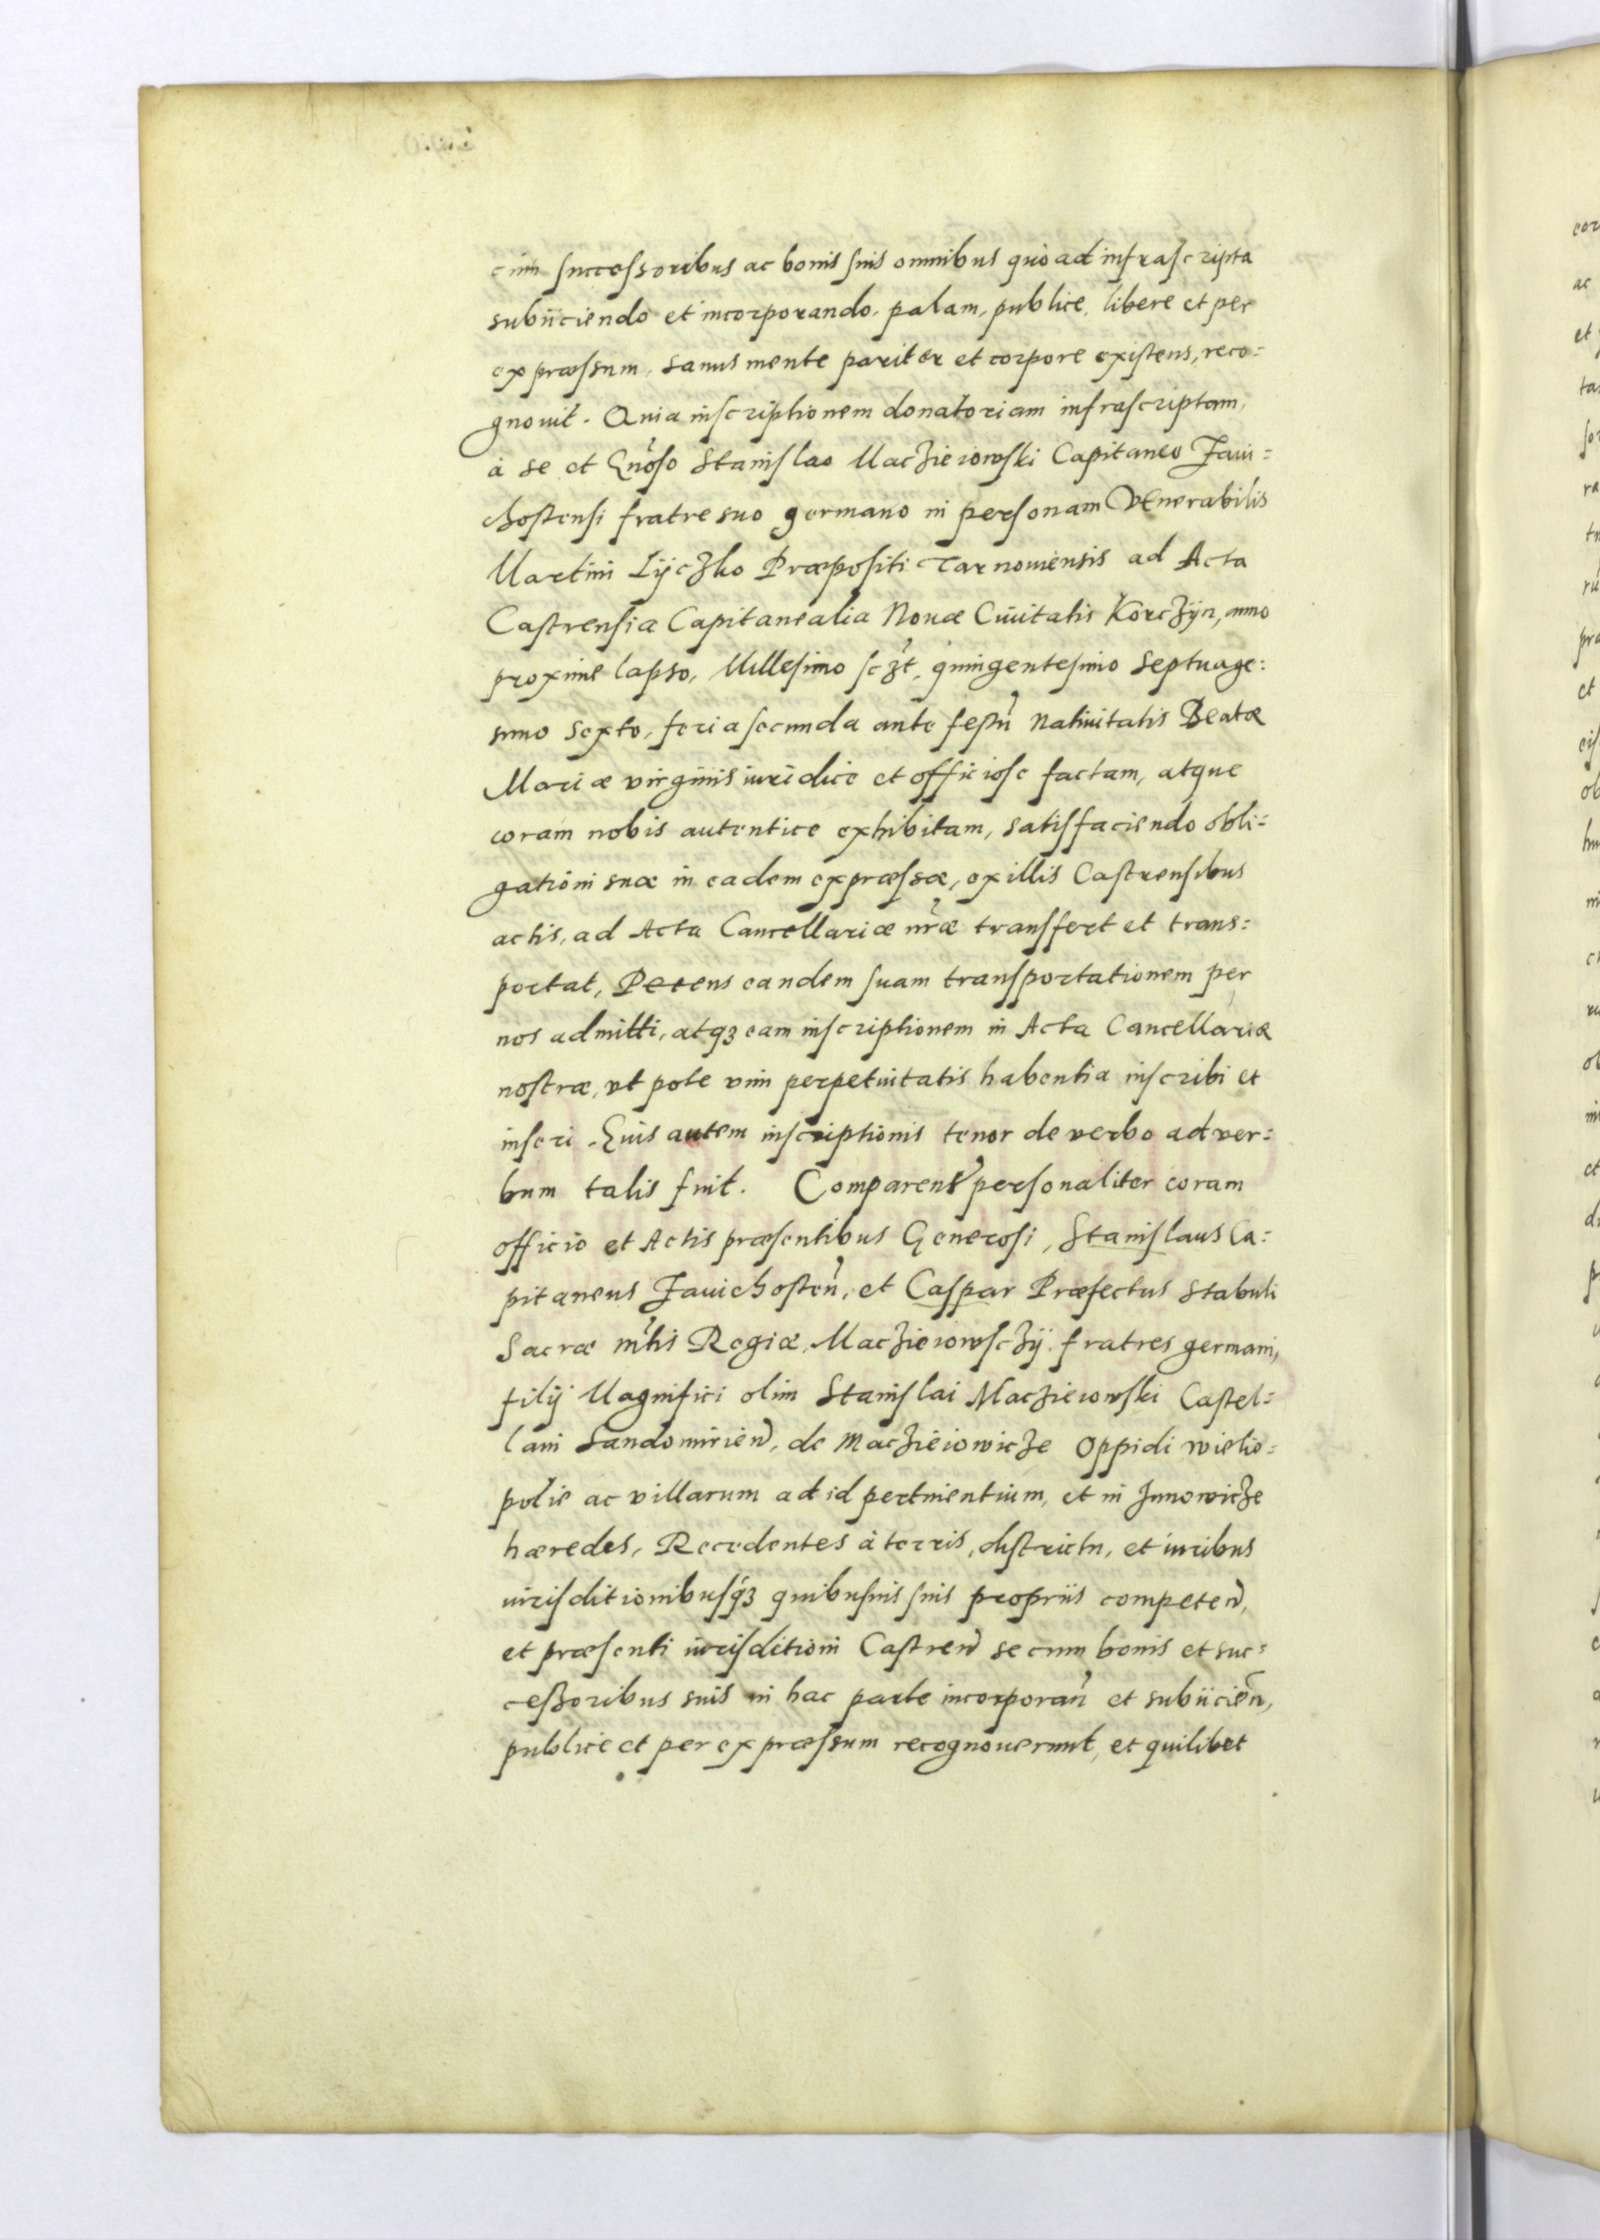 cum successoribus ac bonis suis omnibus quo ad infrascripta
subijciendo et incorporando, palam, publice, libere et per
expræssum, sanus mente pariter et corpore existens, reco=
gnouit. Quia inscriptionem donatoriam infrascriptam,
à se et Gnôso Stanislao Macżieiowski Capitaneo Zaui=
chostensi fratre suo germano in personam Venerabilis
Martini Lyczko Præpositi Tarnouiensis ad Acta
Castrensia Capitanealia Nouæ Ciuitatis Korczyn, anno
proxime lapso, Millesimo sczt, quingentesimo Septuage:
simo Sexto, feria secunda ante festũ Natiuitatis Beatæ
Mariæ virginis iuridice et officiose factam, atque
coram nobis autentice exhibitam, satisfaciendo obli=
gationi suæ in eadem expræssæ, ex illis Castrensibus
actis, ad Acta Cancellariæ nr̃æ transfert et trans=
portat, Petens eandem suam transportationem per
nos admitti, atqз eam inscriptionem in Acta Cancellariæ
nostræ, vt pote vim perpetuitatis habentia inscribi et
inseri. Cuius autem inscriptionis tenor de verbo ad ver=
bum talis fuit. Comparentes personaliter coram
officio et Actis præsentibus Generosi, Stanislaus Ca=
pitaneus Zauichosteñ, et Caspar Præfectus Stabuli
Sacræ Mtis Regiæ, Maczieiowsczÿ fratres germani,
filÿ Magnifici olim Stanislai Maczieiowski Castel=
lani Sandomirieñ, de Maczieiowicze Oppidi Wielo=
polie ac villarum ad id pertinentium, et in Junowicze
hæredes, Recedentes à terris, districtu, et iuribus
iurisditionibusqз quibusuis suis proprijs competeñ,
et præsenti iurisditioni Castreñ se cum bonis et suc=
cessoribus suis in hac parte incorporañ et subijcieñ,
publice et per expræssum recognouerunt, et quilibet